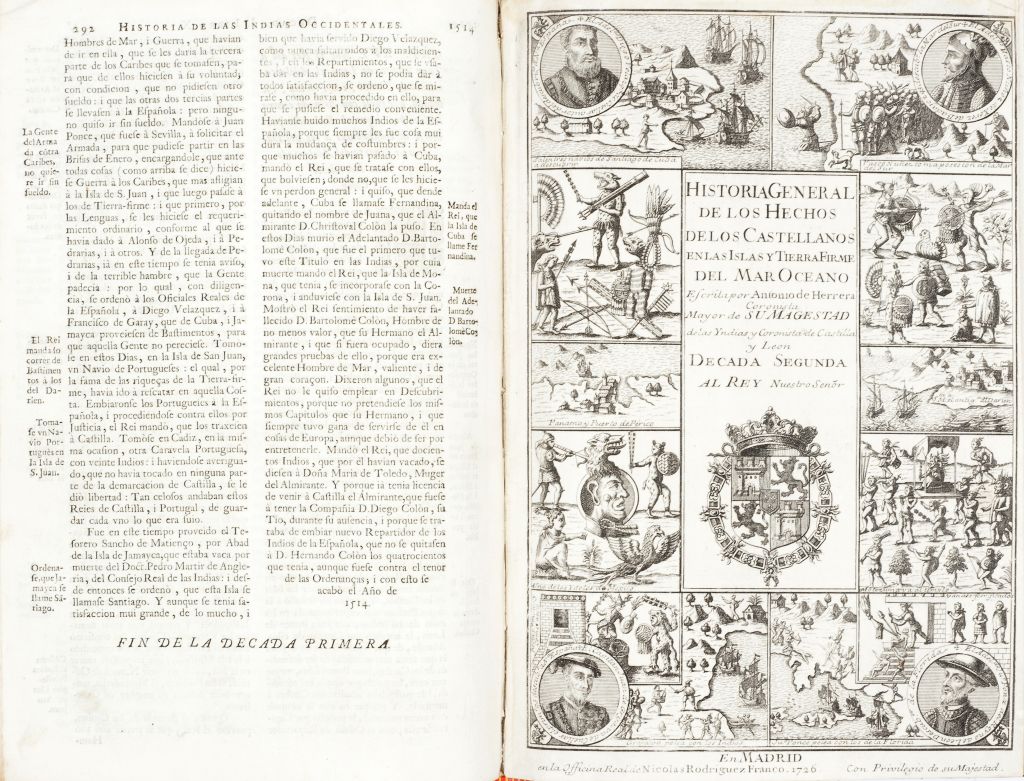 292 HISTORIA DE LAS INDIAS OCCIDENTALES. 1514
Hombres de Mar, i Guerra, que havian
de ir en ella, que se les daria la tercera
parte de los Caribes que se tomasen, pa-
ra que de ellos hiciesen à su voluntad,
con condicion, que no pidiesen otro
sueldo: i que las otras dos tercias partes
se llevasen à la Española: pero ningu-
no quiso ir sin sueldo. Mandòse à Juan
Ponce, que fuese à Sevilla, à solicitar el
Armada, para que pudiese partir en las
Brisas de Enero, encargandole, que ante
todas cosas (como arriba se dice) hicie-
se Guerra à los Caribes, que mas afligian
à la Isla de S. Juan, i que luego pasase à
los de Tierra-firme: i que primero, por
las Lenguas, se les hiciese el requeri-
miento ordinario, conforme al que se
havia dado à Alonso de Ojeda, i à Pe-
drarias, i à otros. Y de la llegada de Pe-
drarias, ià en este tiempo se tenia aviso,
i de la terrible hambre, que la Gente
padecia: por lo qual, con diligen-
cia, se ordenò à los Oficiales Reales de
la Española, à Diego Velazquez, i à
Francisco de Garay, que de Cuba, i Ja-
mayca proveiesen de Bastimentos, para
que aquella Gente no pereciese. Tomo-
se en estos Dias, en la Isla de San Juan,
vn Navio de Portugueses: el qual, por
la fama de las riqueças de la Tierra-fir-
me, havia ido à rescatar en aquella Cos-
ta. Embiaronse los Portugueses à la Es-
pañola, i procediendose contra ellos por
Justicia, el Rei mandò, que los traxesen
à Castilla. Tomòse en Cadiz, en la mis-
ma ocasion, otra Caravela Portuguesa,
con veinte Indios: i haviendose averigua-
do, que no havia tocado en ninguna par-
te de la demarcacion de Castilla, se le
diò libertad: Tan celosos andaban estos
Reies de Castilla, i Portugal, de guar-
dar cada vno lo que era suio.
Fue en este tiempo proveido el Te-
sorero Sancho de Matienço, por Abad
de la Isla de Jamayca, que estaba vaca por
muerte del Doct. Pedro Martir de Angle-
ria, del Consejo Real de las Indias: i des-
de entonces se ordenò, que esta Isla se
llamase Santiago. Y aunque se tenia sa-
tisfaccion mui grande, de lo mucho, i
La Gente
del Arma
da cõtra
Caribes,
no quie-
re ir sin
sueldo.
El Rei
manda so
correr de
Bastimen
tos à los
del Da-
rien.
Toma-
se vn Na-
vio Por-
tuguès en
la Isla de
S. Juan.
Ordena-
se, que la
mayca se
llame Sã-
tiago.
bien que havia servido Diego Velazquez,
como nunca faltan todos à los maldicien-
tes, i en los Repartimientos, que se vsa-
ba dàr en las Indias, no se podia dàr à
todos satisfaccion, se ordenò, que se mi-
rase, como havia procedido en ello, para
que se pusiese el remedio conveniente.
Havianse huido muchos Indios de la Es-
pañola, porque siempre les fue cosa mui
dura la mudança de costumbres: i por-
que muchos se havian pasado à Cuba,
mandò el Rei, que se tratase con ellos,
que bolviesen; donde no, que se les hicie-
se vn perdon general: i quiso, que dende
adelante, Cuba se llamase Fernandina,
quitando el nombre de Juana, que el Al-
mirante D. Christoval Colòn la puso. En
estos Dias muriò el Adelantado D. Barto-
lomè Colòn, que fue el primero que tu-
vo este Titulo en las Indias, por cuia
muerte mandò el Rei, que la Isla de Mo-
na, que tenia, se incorporase con la Co-
rona, i anduviese con la Isla de S. Juan.
Mostrò el Rei sentimiento de haver fa-
llecido D. Bartolomè Colòn, Hombre de
no menos valor, que su Hermano el Al-
mirante, i que si fuera ocupado, diera
grandes pruebas de ello, porque era ex-
celente Hombre de Mar, valiente, i de
gran coraçon. Dixeron algunos, que el
Rei no le quiso emplear en Descubri-
mientos, porque no pretendiese los mis-
mos Capitulos que su Hermano, i que
siempre tuvo gana de servirse de èl en
cosas de Europa, aunque debiò de ser por
entretenerle. Mandò el Rei, que docien-
tos Indios, que por èl havian vacado, se
diesen à Doña Maria de Toledo, Muger
del Almirante. Y porque ià tenia licencia
de venir à Castilla el Almirante, que fuese
à tener la Compañia D. Diego Colòn, su
Tio, durante su ausencia, i porque se tra-
taba de embiar nuevo Repartidor de los
Indios de la Española, que no se quitasen
à D. Hernando Colòn los quatrocientos
que tenia, aunque fuese contra el tenor
de las Ordenanças; i con esto se
acabò el Año de
1514.
Manda el
Rei, que
la Isla de
Cuba se
llame Fer
nandina.
Muerte
del Ade-
lantado
D Barto-
lomè Co-
lòn.
FIN DE LA DECADA PRIMERA.
Salen tres navios de Santiago de Cuba
a descubrir
HISTORIA GENERAL
DE LOS HECHOS
DE LOS CASTELLANOS
EN LAS ISLAS Y TIERRA FIRME
DEL MAR OCEANO
Escrita por Antonio de Herrera
Coronista
Mayor de SU MAGESTAD
de las Yndias y Coronista de Castilla
y Leon
DECADA SEGUNDA
AL REY Nuestro Señor
Panama y Puerto de Perico
Ju Ponce pelea con los de la Florida
En MADRID
en la Officina Real de Nicolas Rodriguez Franco. 1726
Con Privilegio de su Majestad.